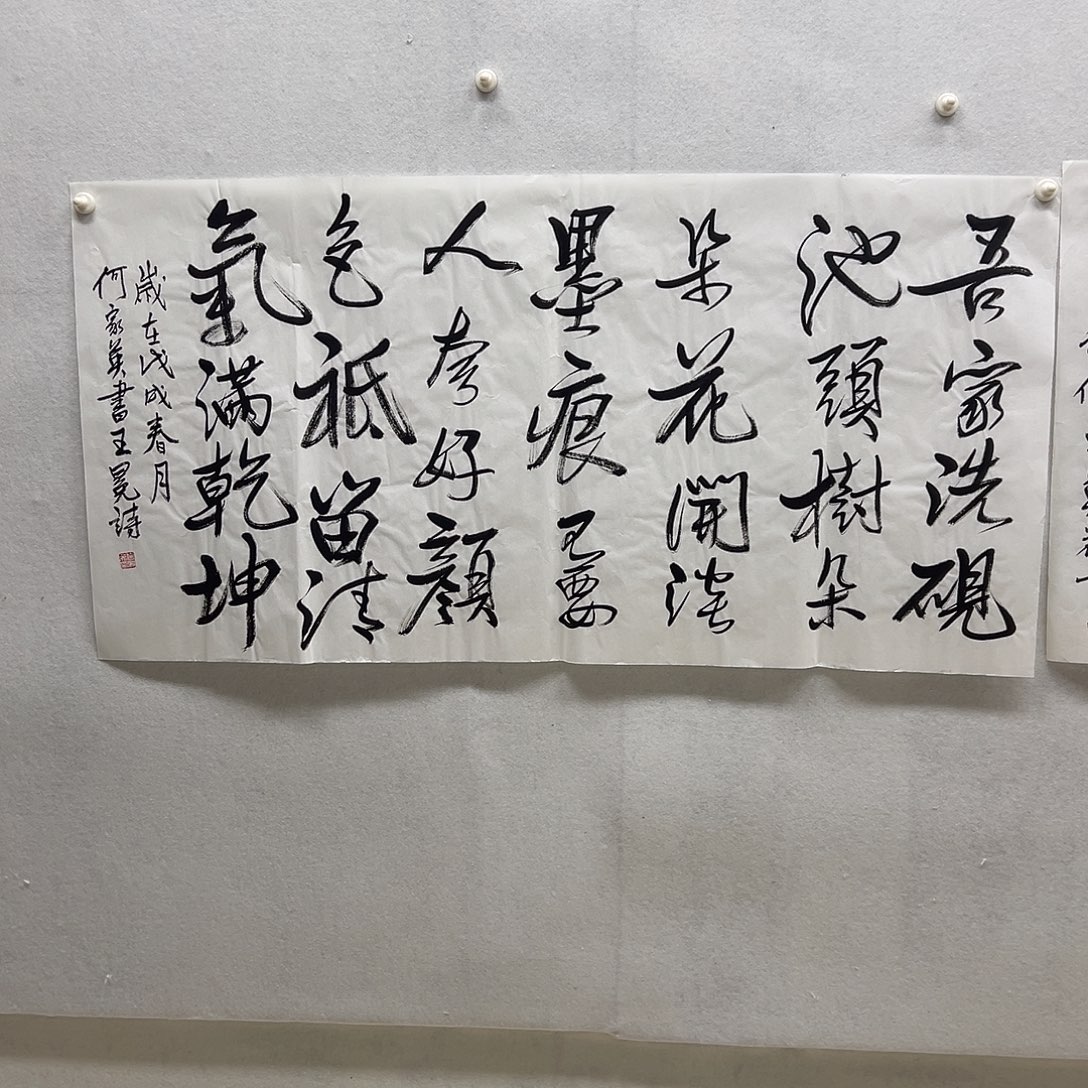 吾家洗硯
池頭樹朵
朵花開淡
墨痕不要
人夸好顏
色祇留清
氣滿乾坤
歲在戊戌春月
何家英書王冕詩